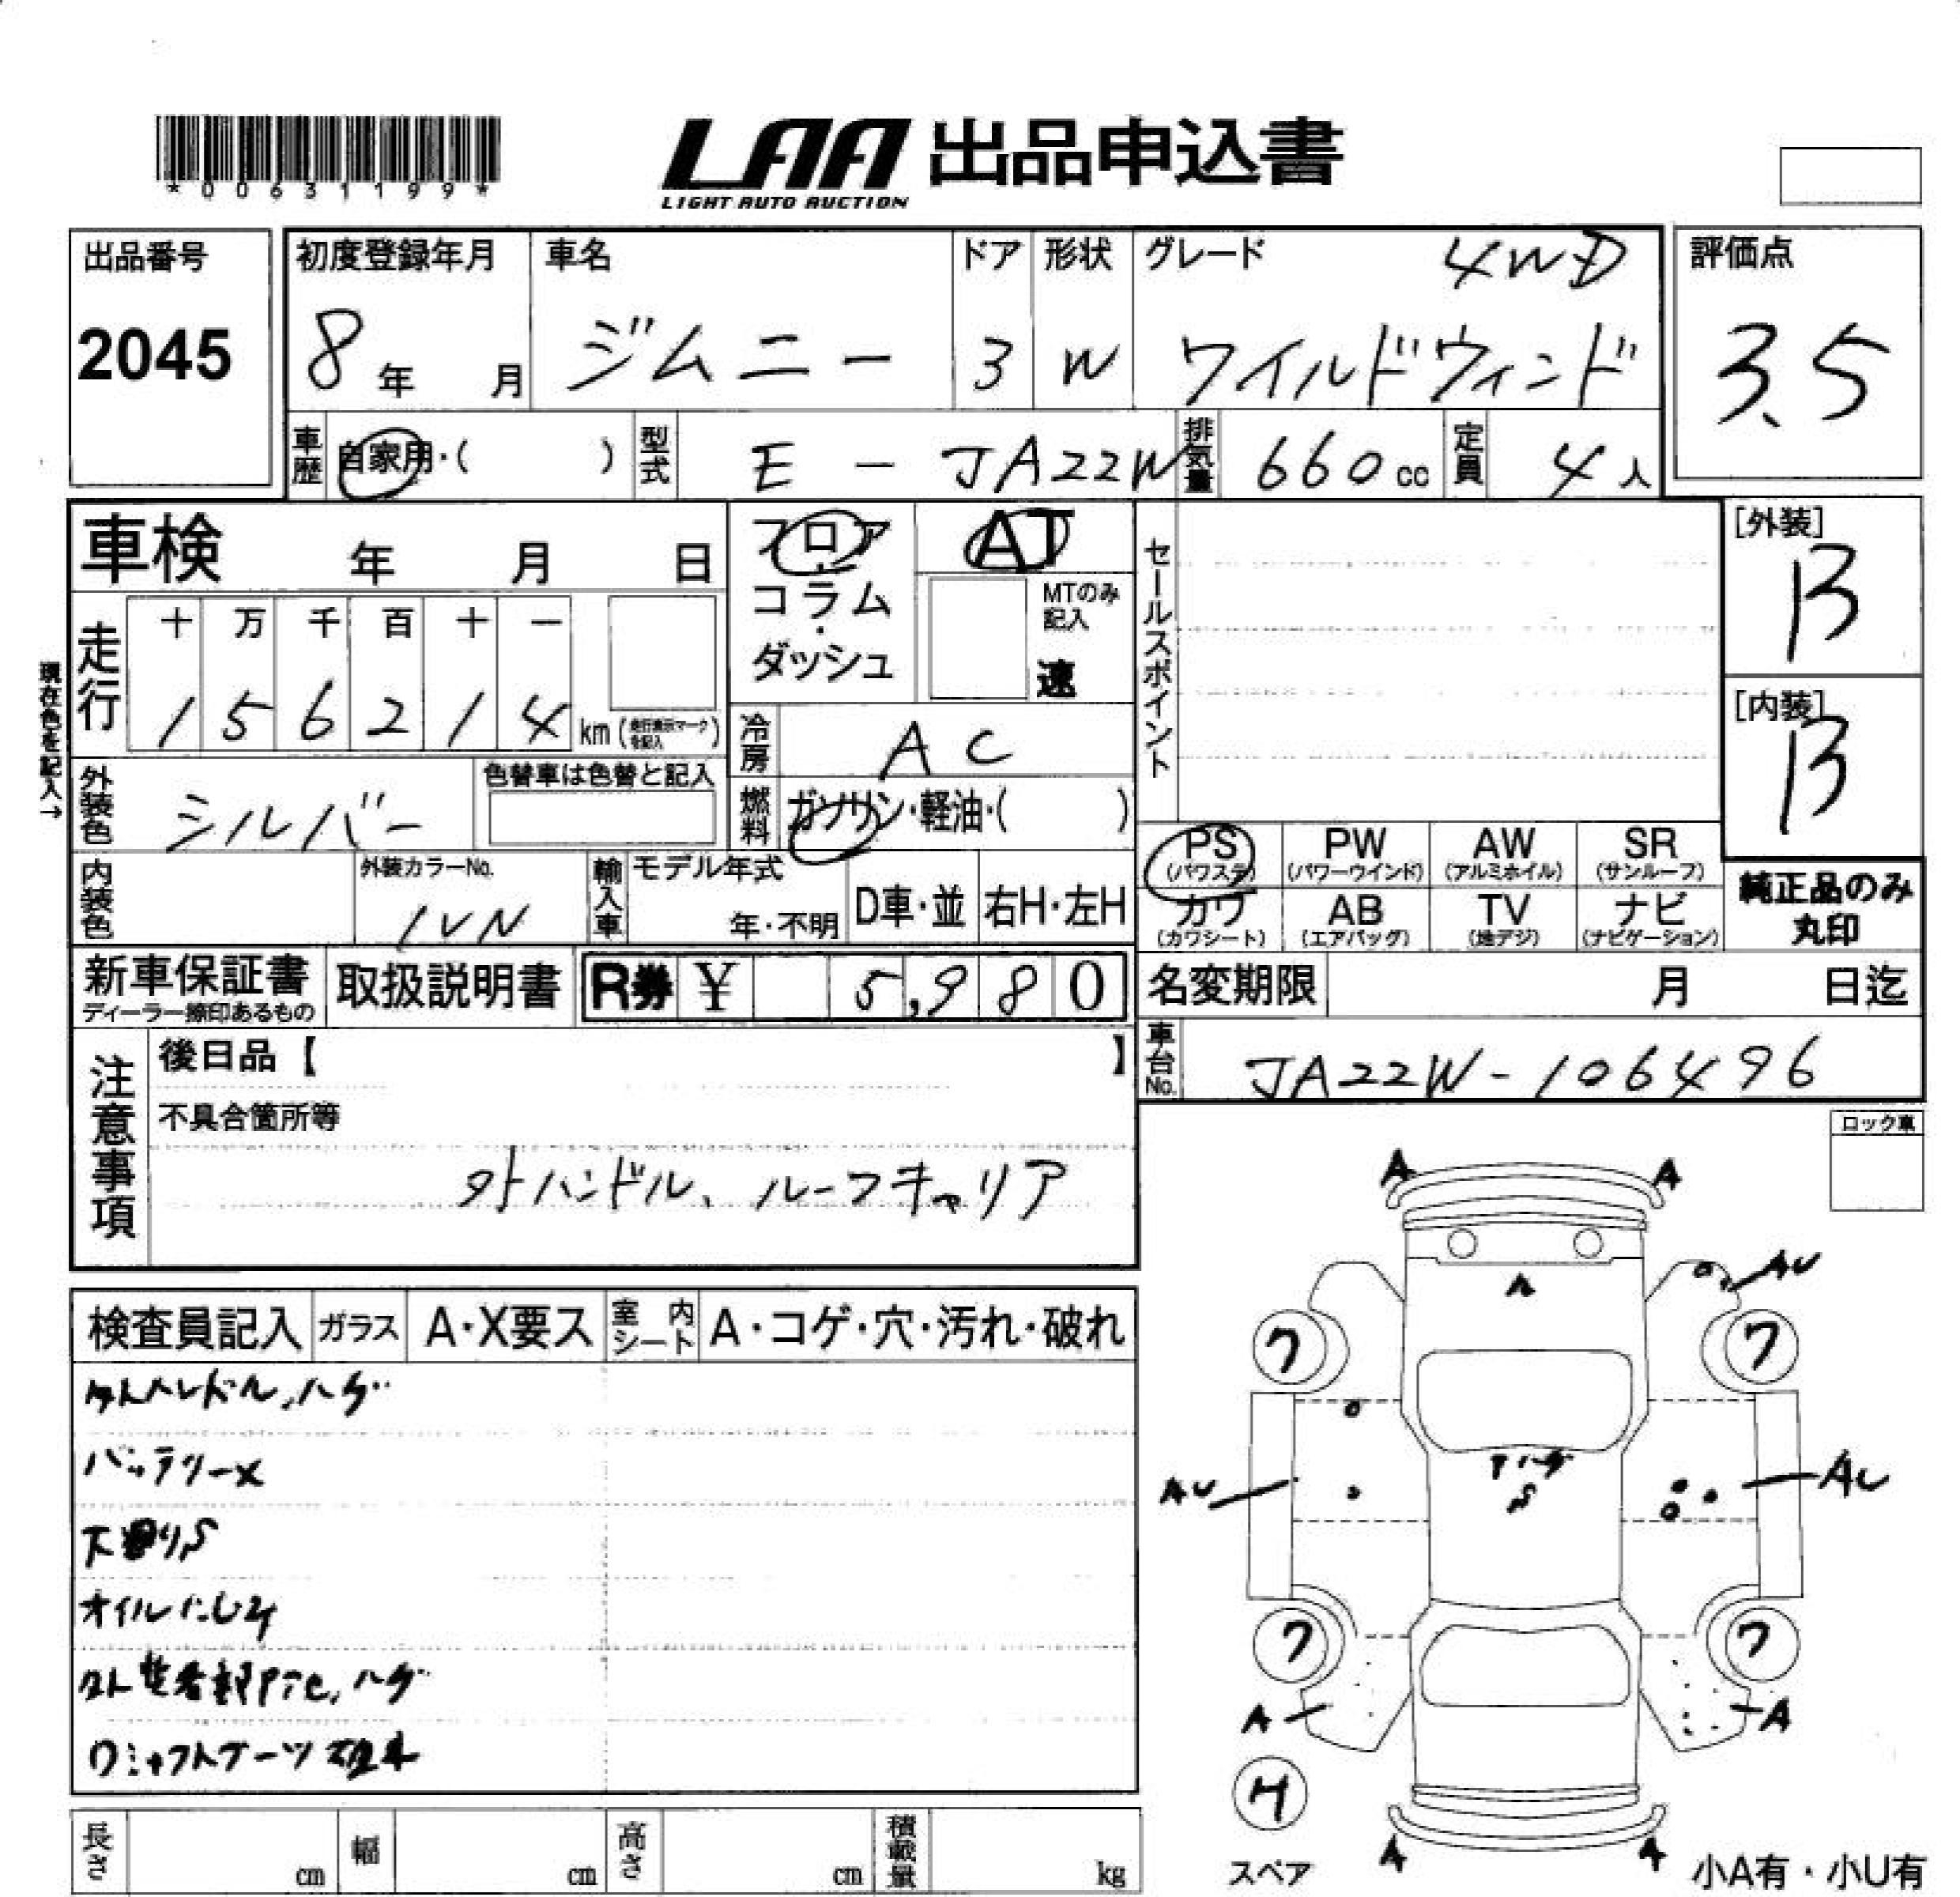 *00631199*
LAA 出品申込書
LIGHT AUTO AUCTION
出品番号
2045
初度登録年月
8年 月
車名
ジムニー
ドア
3
形状
W
グレード 4WD
ワイルドウィンド
評価点
3.5
車歴 自家用・( )
型式 E - JA22W
排気量 660cc
定員 4人
車検 年 月 日
現在色を記入→
走行
十 万 千 百 十 一
1 5 6 2 1 4 km
フロア
・
コラム
・
ダッシュ
AT
MTのみ
記入
速
冷房 AC
燃料 ガソリン・軽油・( )
外装色 シルバー
色替車は色替と記入
内装色
外装カラーNo.
1VN
輸入車
モデル年式
年・不明
D車・並
右H・左H
セールスポイント
[外装]
B
[内装]
B
PS PW AW SR
(パワステ) (パワーウインド) (アルミホイル) (サンルーフ)
カワ AB TV ナビ
(カワシート) (エアバッグ) (地デジ) (ナビゲーション)
純正品のみ
丸印
新車保証書
ディーラー捺印あるもの
取扱説明書
R券 ¥ 5,980
名変期限 月 日迄
車台No. JA22W-106496
注意事項
後日品【 】
不具合箇所等
外ハンドル、ルーフキャリア
ロック車
検査員記入 ガラス A・X要ス 室内シート A・コゲ・穴・汚れ・破れ
バッテリーX
下廻りS
オイルにじみ
A A
A
AU
ワ ワ
S
AU AU
ワ ワ
A A
A A
スペア
小A有・小U有
長さ cm 幅 cm 高さ cm 積載量 kg